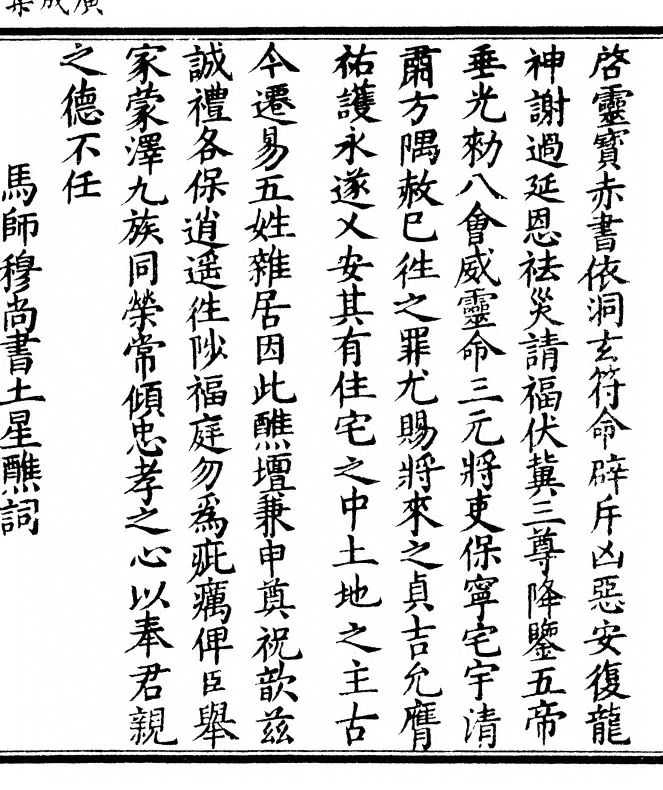 廣成集
啓靈寳赤書依洞玄符命辟斥凶惡安復龍
神謝過延恩祛災請福伏冀三尊降鑒五帝
垂光勑八會威靈命三元將吏保寧宅宇清
肅方隅赦巳徃之罪尤賜將來之貞吉允膺
祐護永遂乂安其有住宅之中土地之主古
今遷易五姓雜居因此醮壇兼申奠祝歆兹
誠禮各保逍遥徃陟福庭勿爲疵癘俾臣舉
家蒙澤九族同榮常傾忠孝之心以奉君親
之德不任
馬師穆尚書土星醮詞